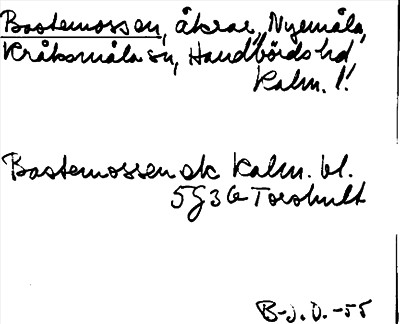 Bastemossen, åkrar, Nyemåla,
Kråksmåla sn, Handbörds hd,
Kalm. l.
Bastemossen ek Kalm. bl.
5G3G Torshult
B-J.O.-55